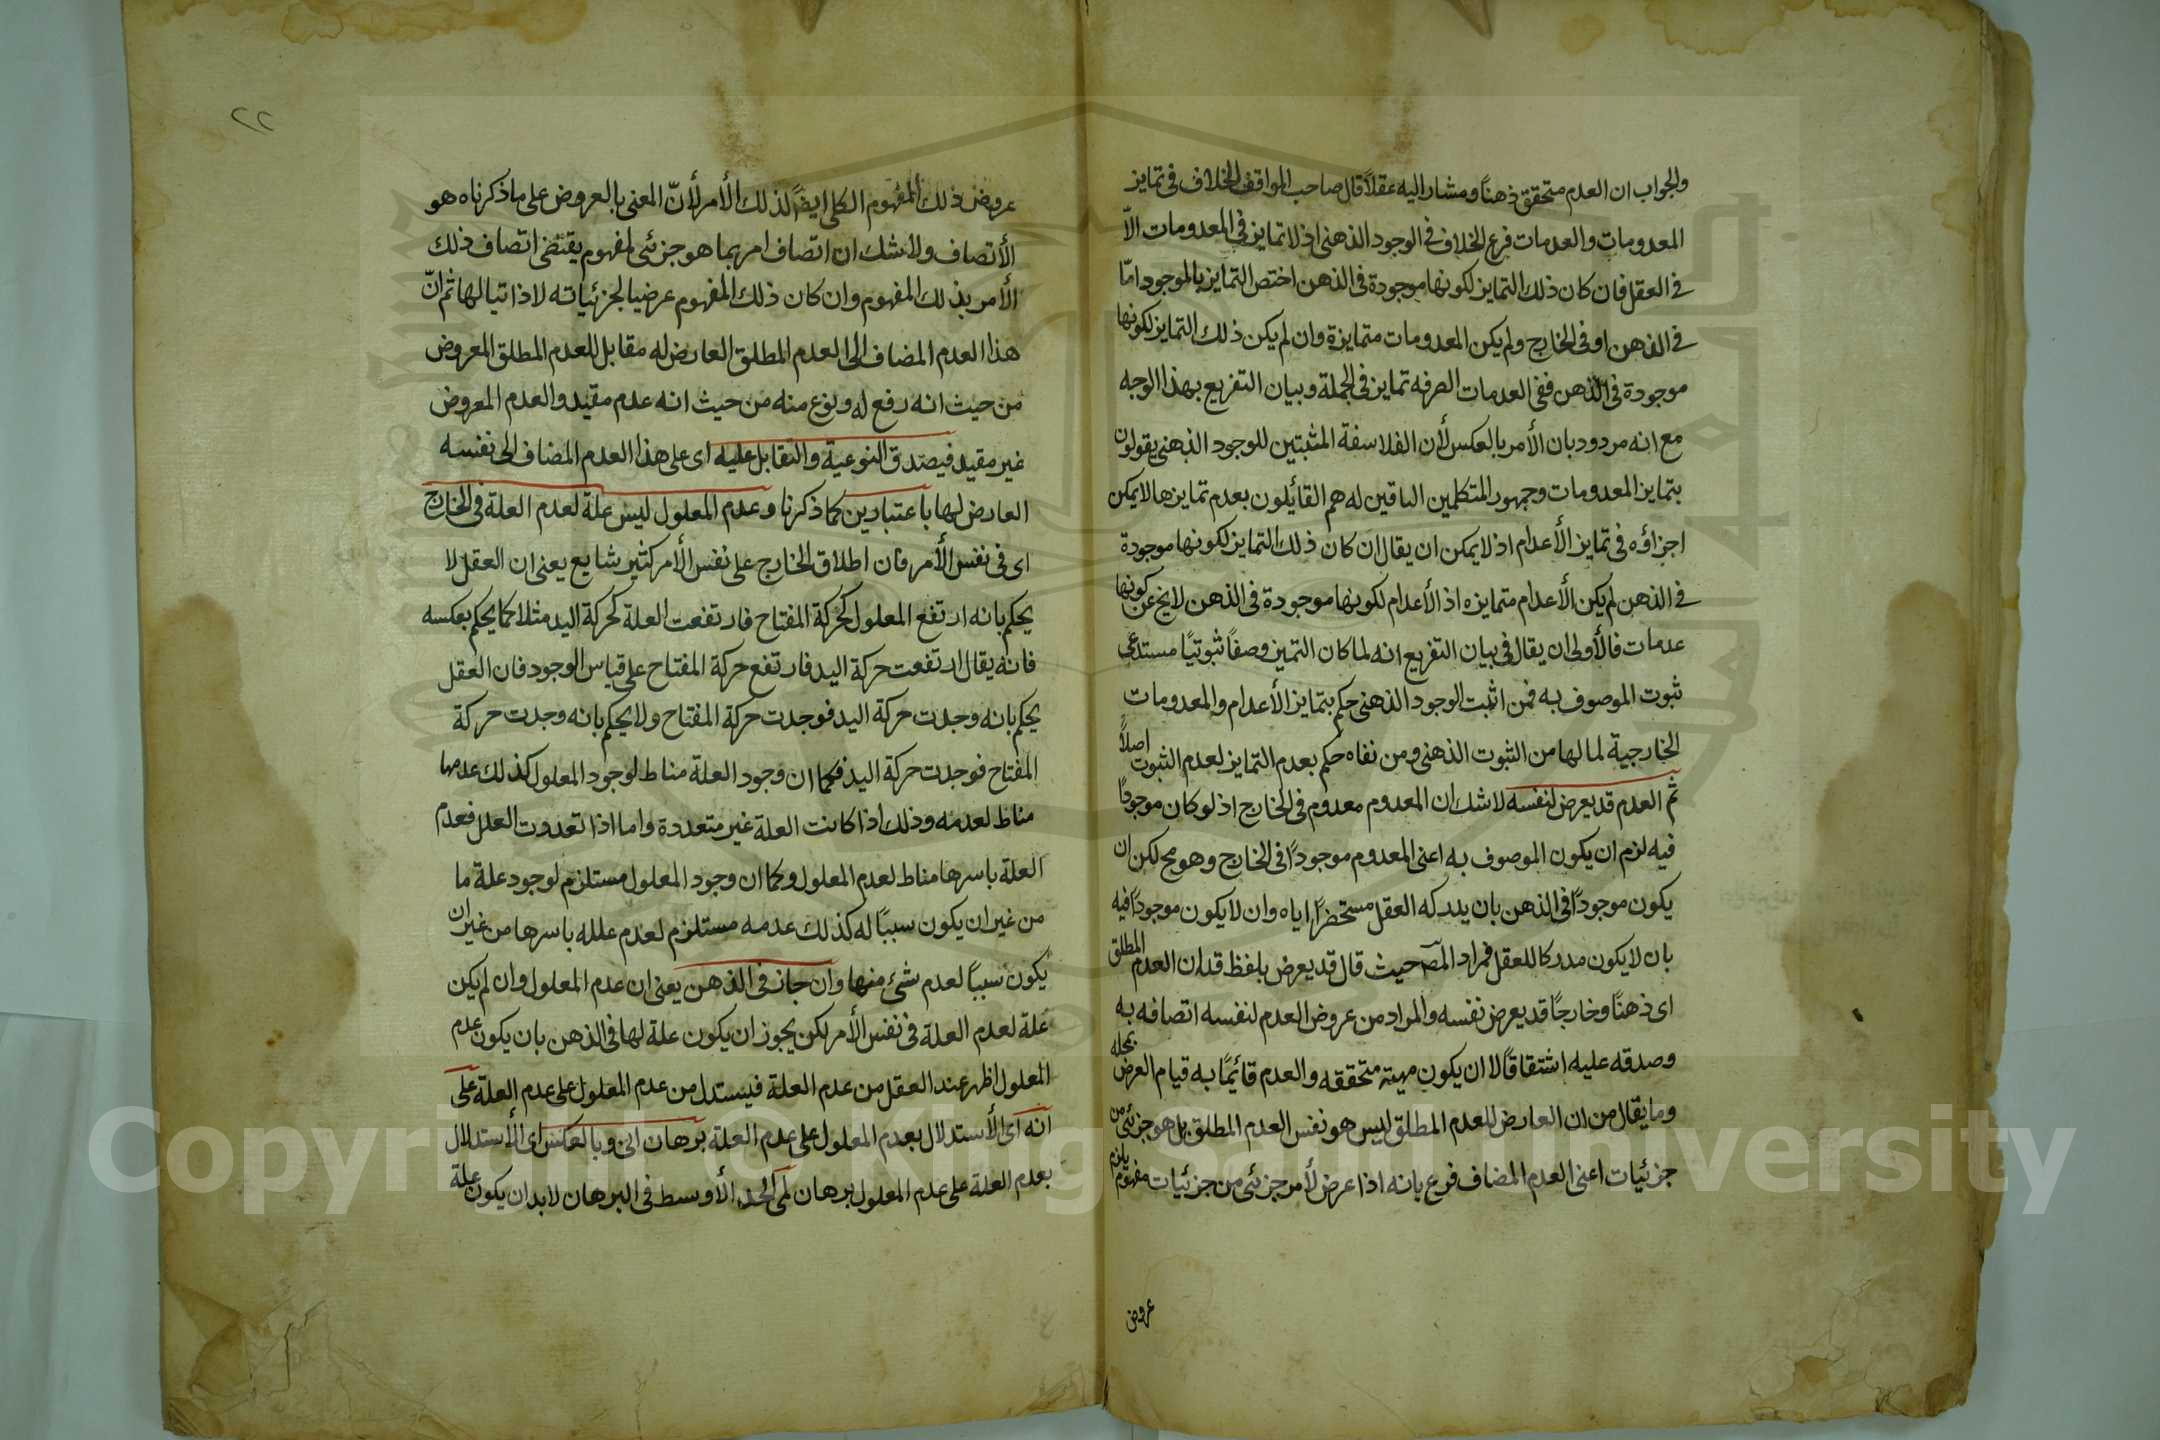 والجواب ان العدم متحقق ذهنًا ومشار اليه عقلاً قال صاحب المواقف الخلاف فى تمايز
المعدومات والعدمات فرع الخلاف فى الوجود الذهنى اذ لا تمايز فى المعدومات الاّ
فى العقل فان كان ذلك التمايز لكونها موجودة فى الذهن اختص التمايز بالموجود امّا
فى الذهن او فى الخارج ولم يكن المعدومات متمايزة وان لم يكن ذلك التمايز لكونها
موجودة فى الذهن ففى العدمات الصرفه تمايز فى الجملة وبيان التفريع بهذا الوجه
مع انه مردود بان الأمر بالعكس لأن الفلاسفة المثبتين للوجود الذهنى يقولون
بتمايز المعدومات وجمهور المتكلمين النافين له هم القائلون بعدم تمايزها لا يمكن
اجزاؤه فى تمايز الأعدام اذ لا يمكن ان يقال ان كان ذلك التمايز لكونها موجودة
فى الذهن لم يكن الأعدام متمايزه اذ الأعدام لكونها موجودة فى الذهن لا يخ عن كونها
عدمات فالأولى ان يقال فى بيان التفريع انه لما كان التميز وصفاً ثبوتيًا مستدعى
ثبوت الموصوف به فمن اثبت الوجود الذهنى حكم بتمايز الأعدام والمعدومات
الخارجية لما لها من الثبوت الذهنى ومن نفاه حكم بعدم التمايز لعدم الثبوت اصلاً
ثم العدم قد يعرض لنفسه لا شك ان المعدوم معدوم فى الخارج اذ لو كان موجودًا
فيه لزم ان يكون الموصوف به اعنى المعدوم موجودًا فى الخارج وهو مح لكن ان
يكون موجودًا فى الذهن بان يدركه العقل مستحضرًا اياه وان لا يكون موجودًا فيه
بان لا يكون مدركا للعقل فمراد المص حيث قال قد يعرض بلفظ قد ان العدم المطلق
اى ذهنًا وخارجًا قد يعرض نفسه والمراد من عروض العدم لنفسه اتصافه به
وصدقه عليه اشتقاقًا لا ان يكون مهية متحققه والعدم قائمًا به قيام العرض بمحله
وما يقال من ان العارض للعدم المطلق ليس هو نفس العدم المطلق بل هو جزئى من
جزئيات اعنى العدم المضاف فرع بانه اذا عرض لأمر جزئى من جزئيات مفهوم يلزم
عروض
٢٢
عروض ذلك المفهوم الكلى ايضًا لذلك الأمر لأنّ المعنى بالعروض على ما ذكرناه هو
الأتصاف ولا شك ان اتصاف امر بما هو جزئى لمفهوم يقتضى اتصاف ذلك
الأمر بذلك المفهوم وان كان ذلك المفهوم عرضيا لجزئياته لا ذاتيا لها ثم انّ
هذا العدم المضاف الى العدم المطلق العارض له مقابل للعدم المطلق المعروض
من حيث انه رفع له ونوع منه من حيث انه عدم مقيد والعدم المعروض
غير مقيد فيصدق النوعية والتقابل عليه اى على هذا العدم المضاف الى نفسه
العارض لها باعتبارين كما ذكرنا وعدم المعلول ليس علة لعدم العلة فى الخارج
اى فى نفس الأمر فان اطلاق الخارج على نفس الأمر كثير شايع يعنى ان العقل لا
يحكم بانه ارتفع المعلول كحركة المفتاح فارتفعت العلة كحركة اليد مثلا كما يحكم بعكسه
فانه يقال ارتفعت حركة اليد فارتفع حركة المفتاح على قياس الوجود فان العقل
يحكم بانه وجدت حركة اليد فوجدت حركة المفتاح ولا يحكم بانه وجدت حركة
المفتاح فوجدت حركة اليد فكما ان وجود العلة مناط لوجود المعلول كذلك عدمها
مناط لعدمه وذلك اذا كانت العلة غير متعددة واما اذا تعددت العلل فعدم
العلة باسرها مناط لعدم المعلول وكما ان وجود المعلول مستلزم لوجود علة ما
من غير ان يكون سببًا له كذلك عدمه مستلزم لعدم علله باسرها من غير ان
يكون سبباً لعدم شئ منها وان جاز فى الذهن يعنى ان عدم المعلول وان لم يكن
علة لعدم العلة فى نفس الأمر لكن يجوز ان يكون علة لها فى الذهن بان يكون عدم
المعلول اظهر عند العقل من عدم العلة فيستدل من عدم المعلول على عدم العلة على
انه اى الأستدلال بعدم المعلول على عدم العلة برهان انى وبالعكس اى الأستدلال
بعدم العلة على عدم المعلول برهان لمى الحد الأوسط فى البرهان لابد ان يكون علة
Copyright © King Saud University